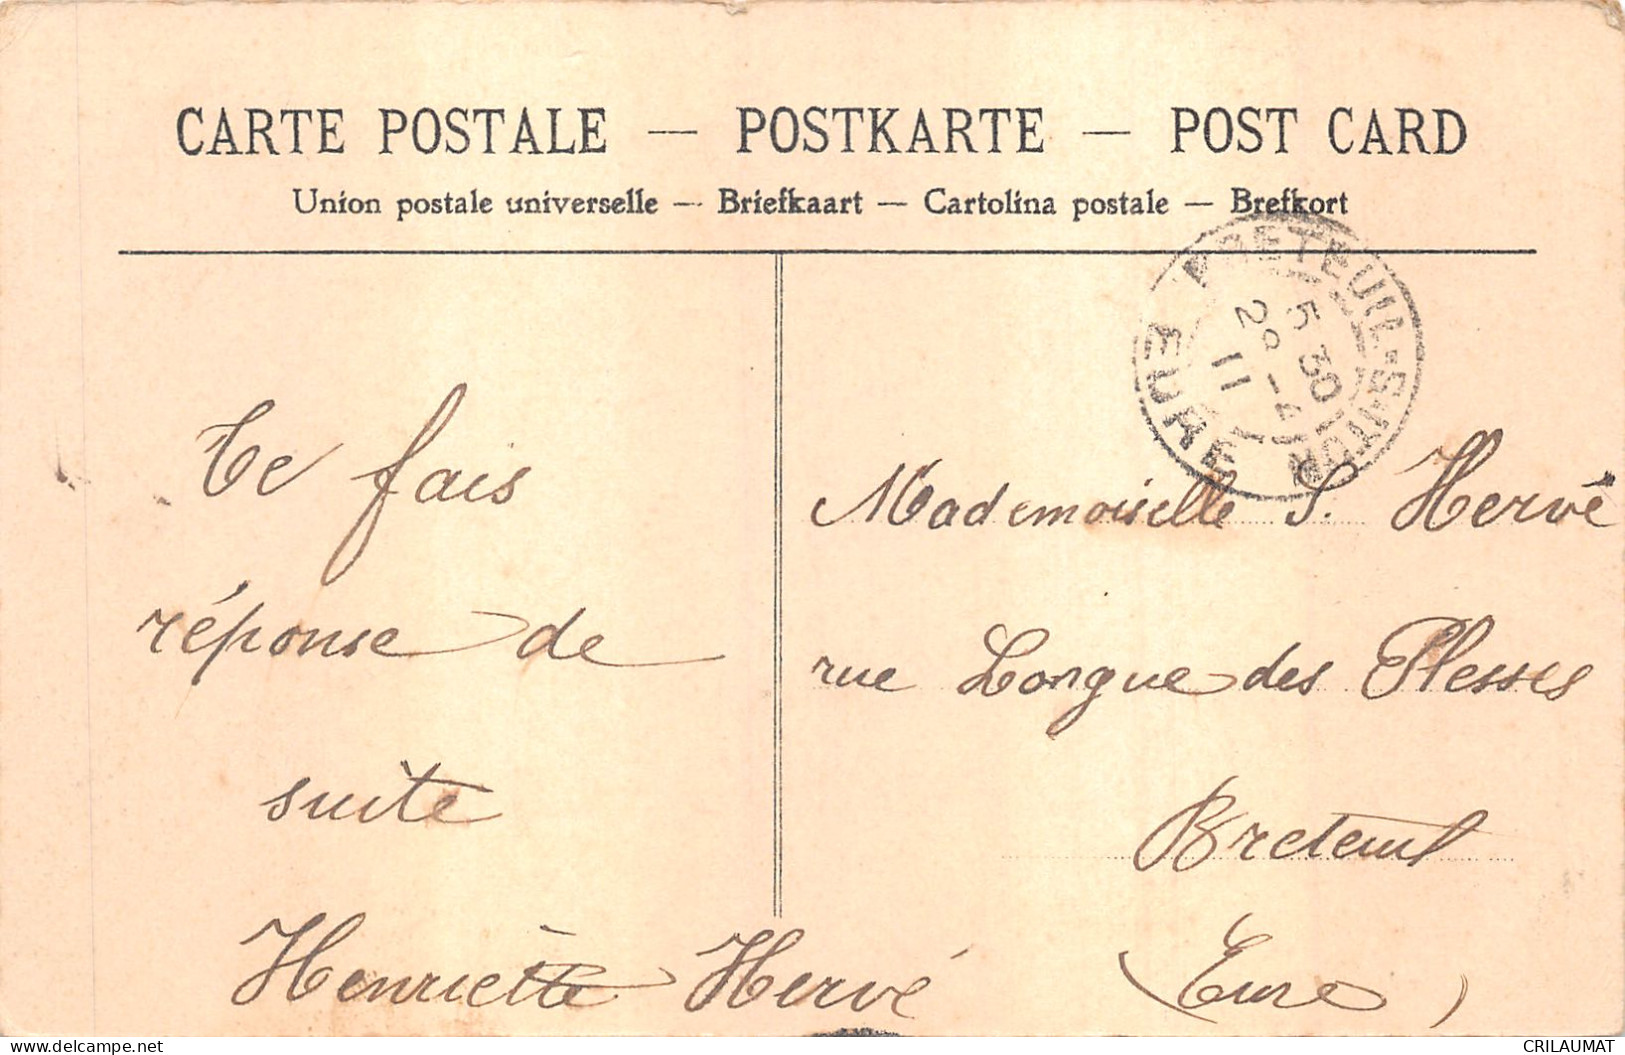 CARTE POSTALE — POSTKARTE — POST CARD
Union postale universelle — Briefkaart — Cartolina postale — Brefkort
BRETEUIL-S-ITON
5 30
28 - 4
11
EURE
Te fais
réponse de
suite
Henriette Hervé
Mademoiselle S. Hervé
rue Longue des Plesses
Breteuil
(Eure)
www.delcampe.net
CRILAUMAT